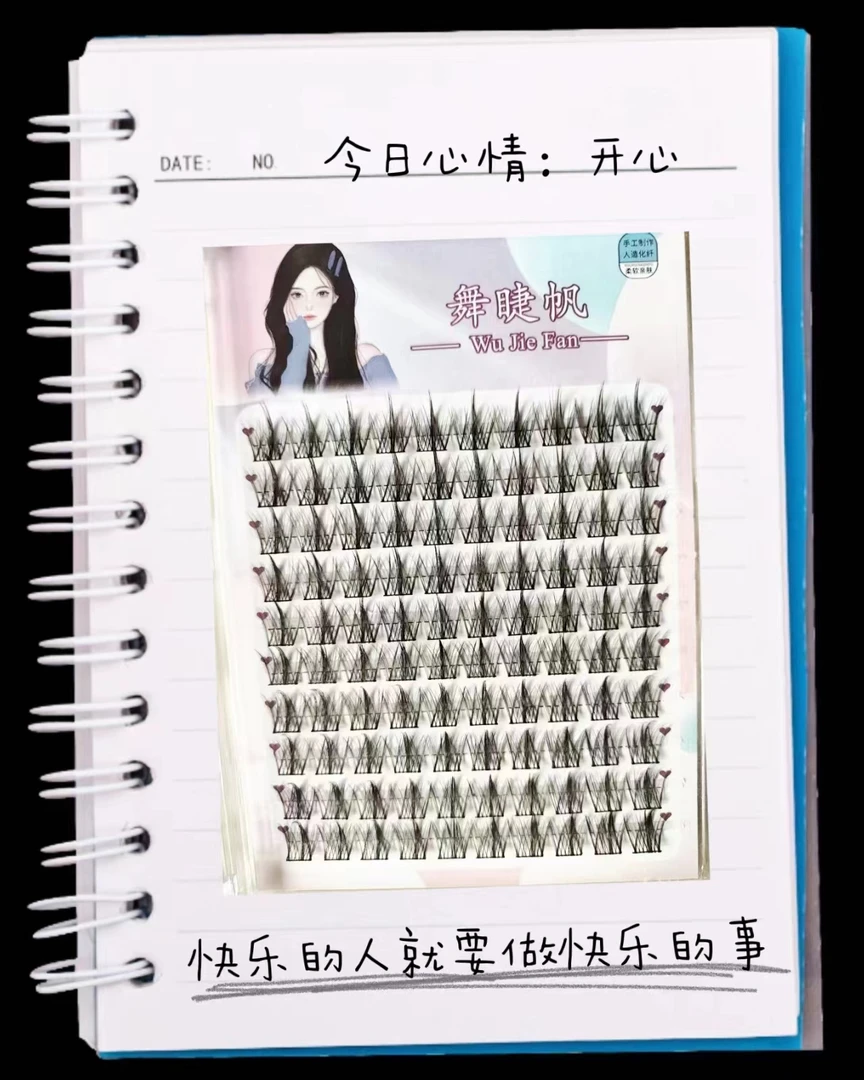 DATE: NO 今日心情：开心
手工制作
人造化纤
柔软亲肤
舞睫帆
Wu Jie Fan
快乐的人就要做快乐的事